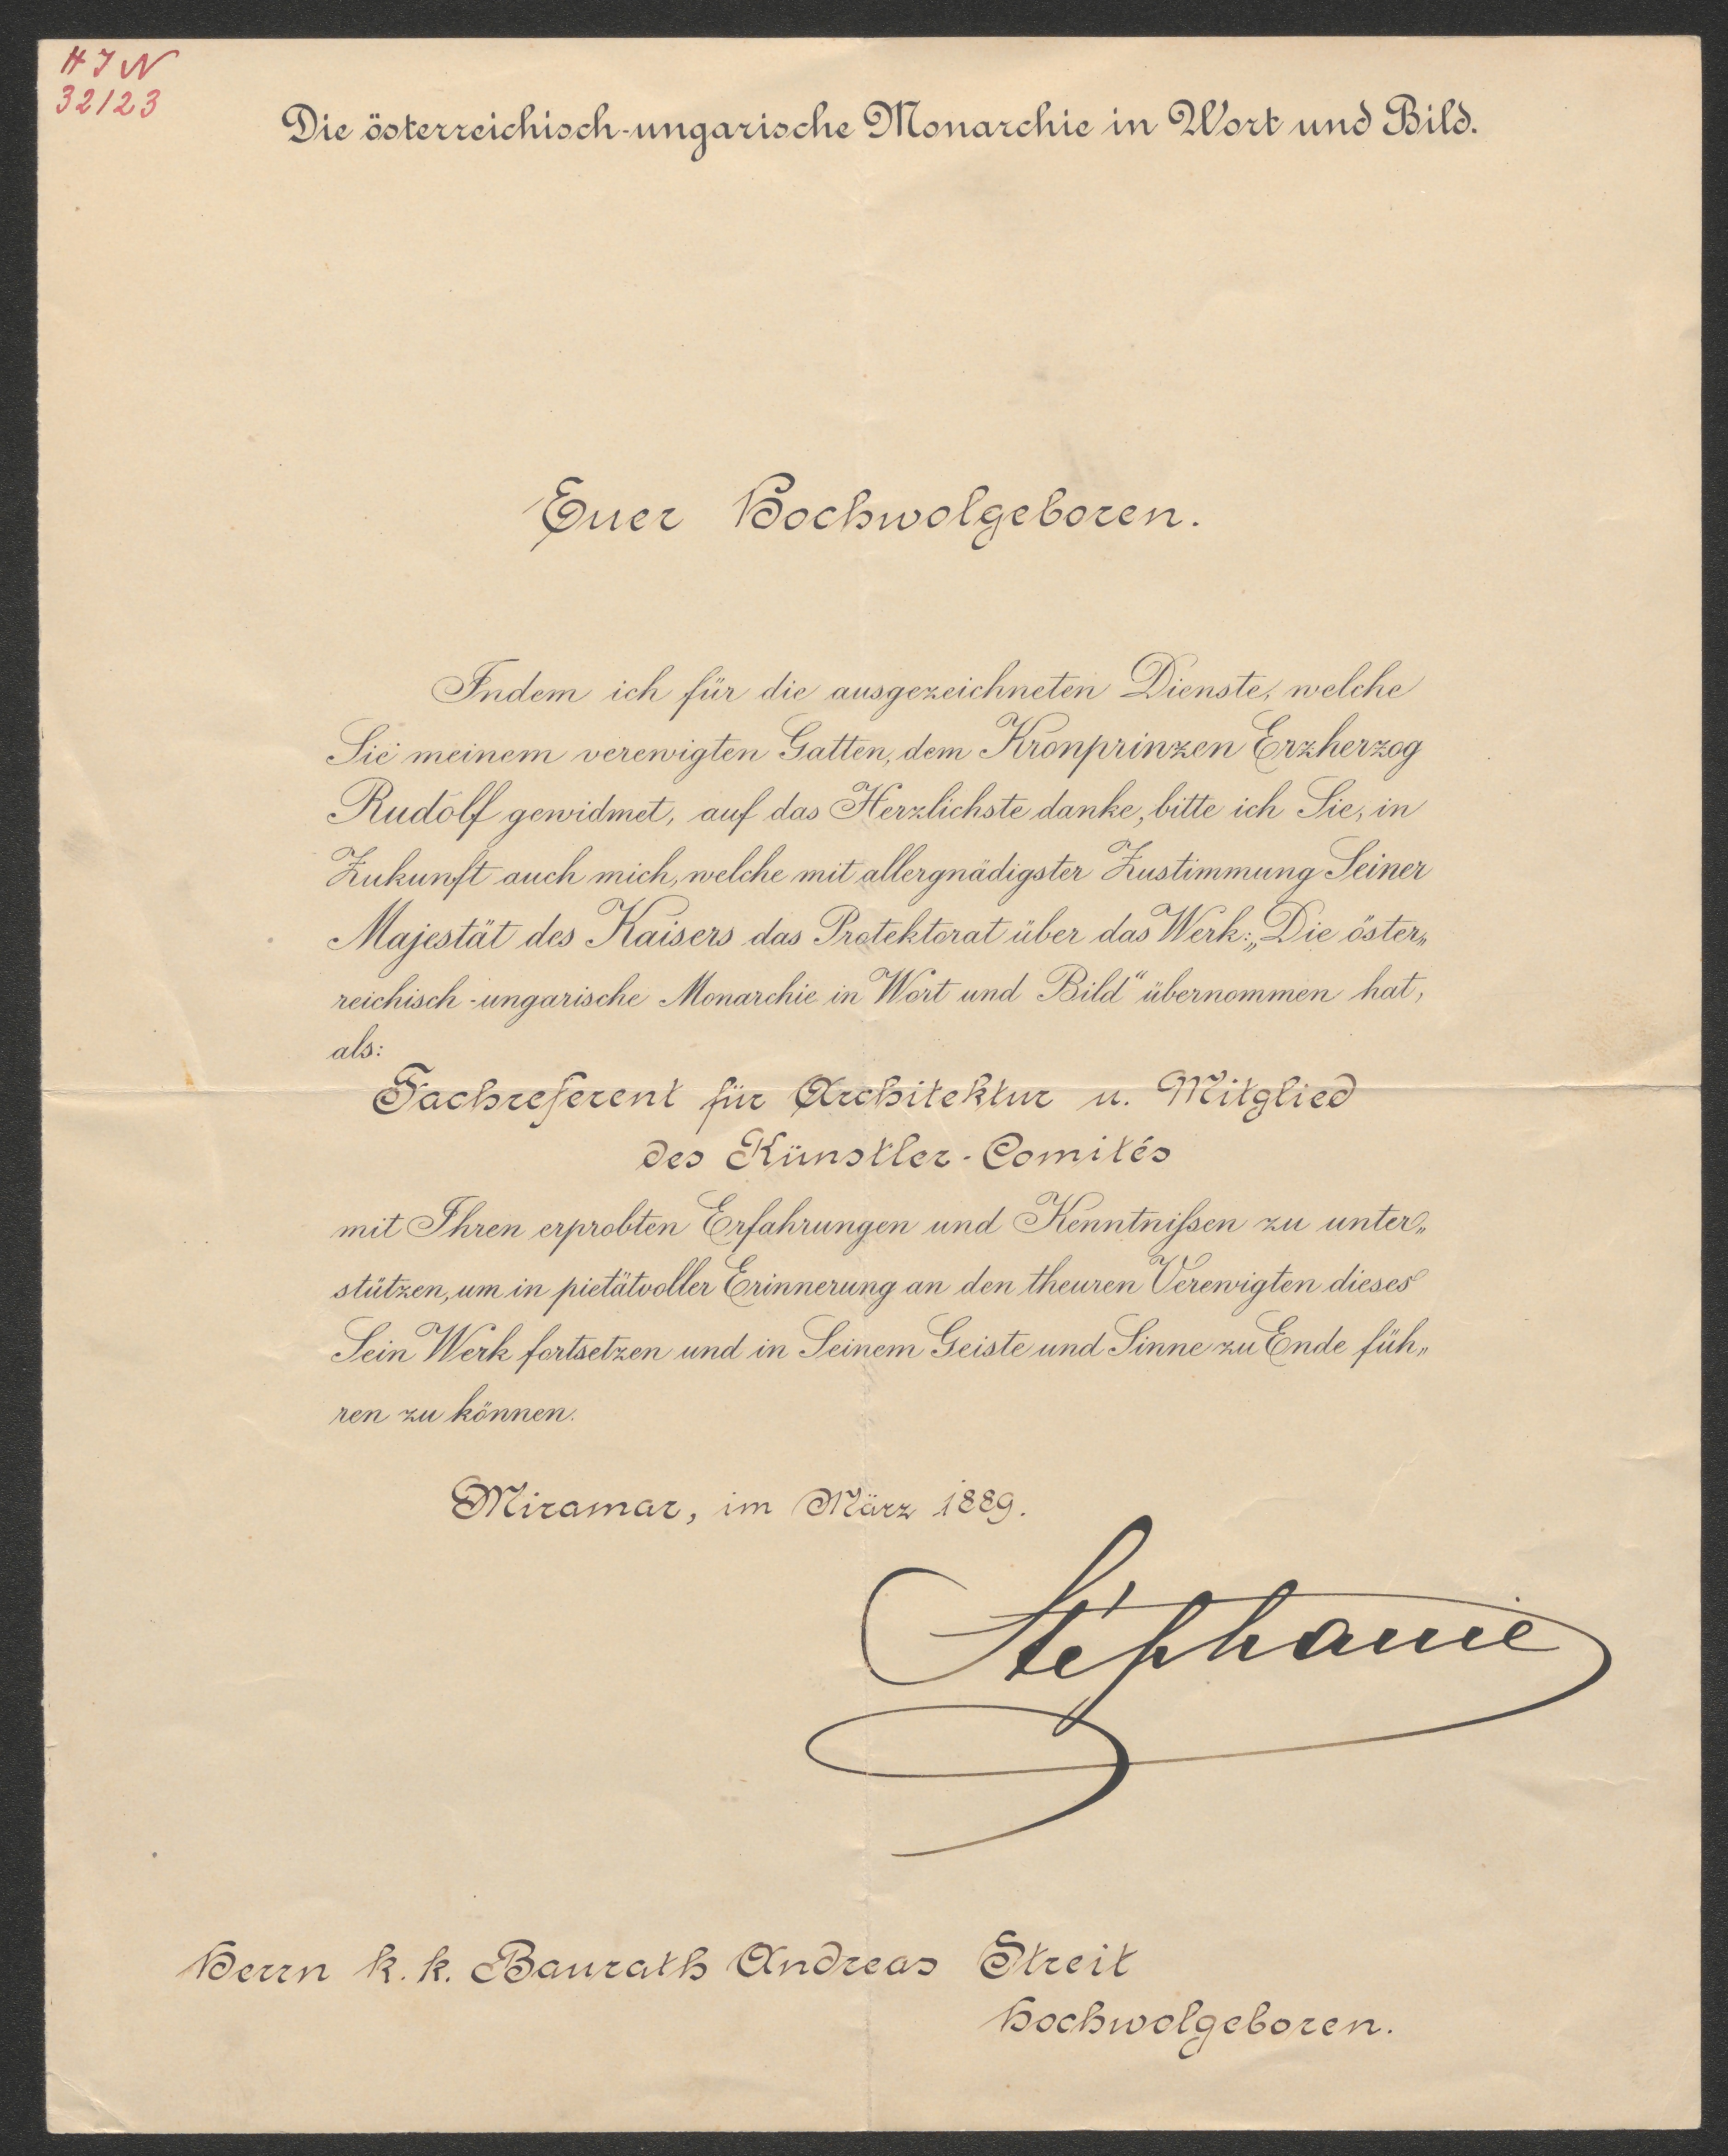 H I N
32123
Die österreichisch-ungarische Monarchie in Wort und Bild.
Euer Hochwolgeboren.
Indem ich für die ausgezeichneten Dienste, welche
Sie meinem verewigten Gatten, dem Kronprinzen Erzherzog
Rudolf gewidmet, auf das Herzlichste danke, bitte ich Sie, in
Zukunft auch mich, welche mit allergnädigster Zustimmung Seiner
Majestät des Kaisers das Protektorat über das Werk: „Die öster„
reichisch-ungarische Monarchie in Wort und Bild“ übernommen hat,
als:
Fachreferent für Architektur u. Mitglied
des Künstler-Comités
mit Ihren erprobten Erfahrungen und Kenntnißen zu unter„
stützen, um in pietätvoller Erinnerung an den theuren Verewigten dieses
Sein Werk fortsetzen und in Seinem Geiste und Sinne zu Ende füh„
ren zu können.
Miramar, im März 1889.
Stéphanie
Herrn k. k. Baurath Andreas Streit
Hochwolgeboren.